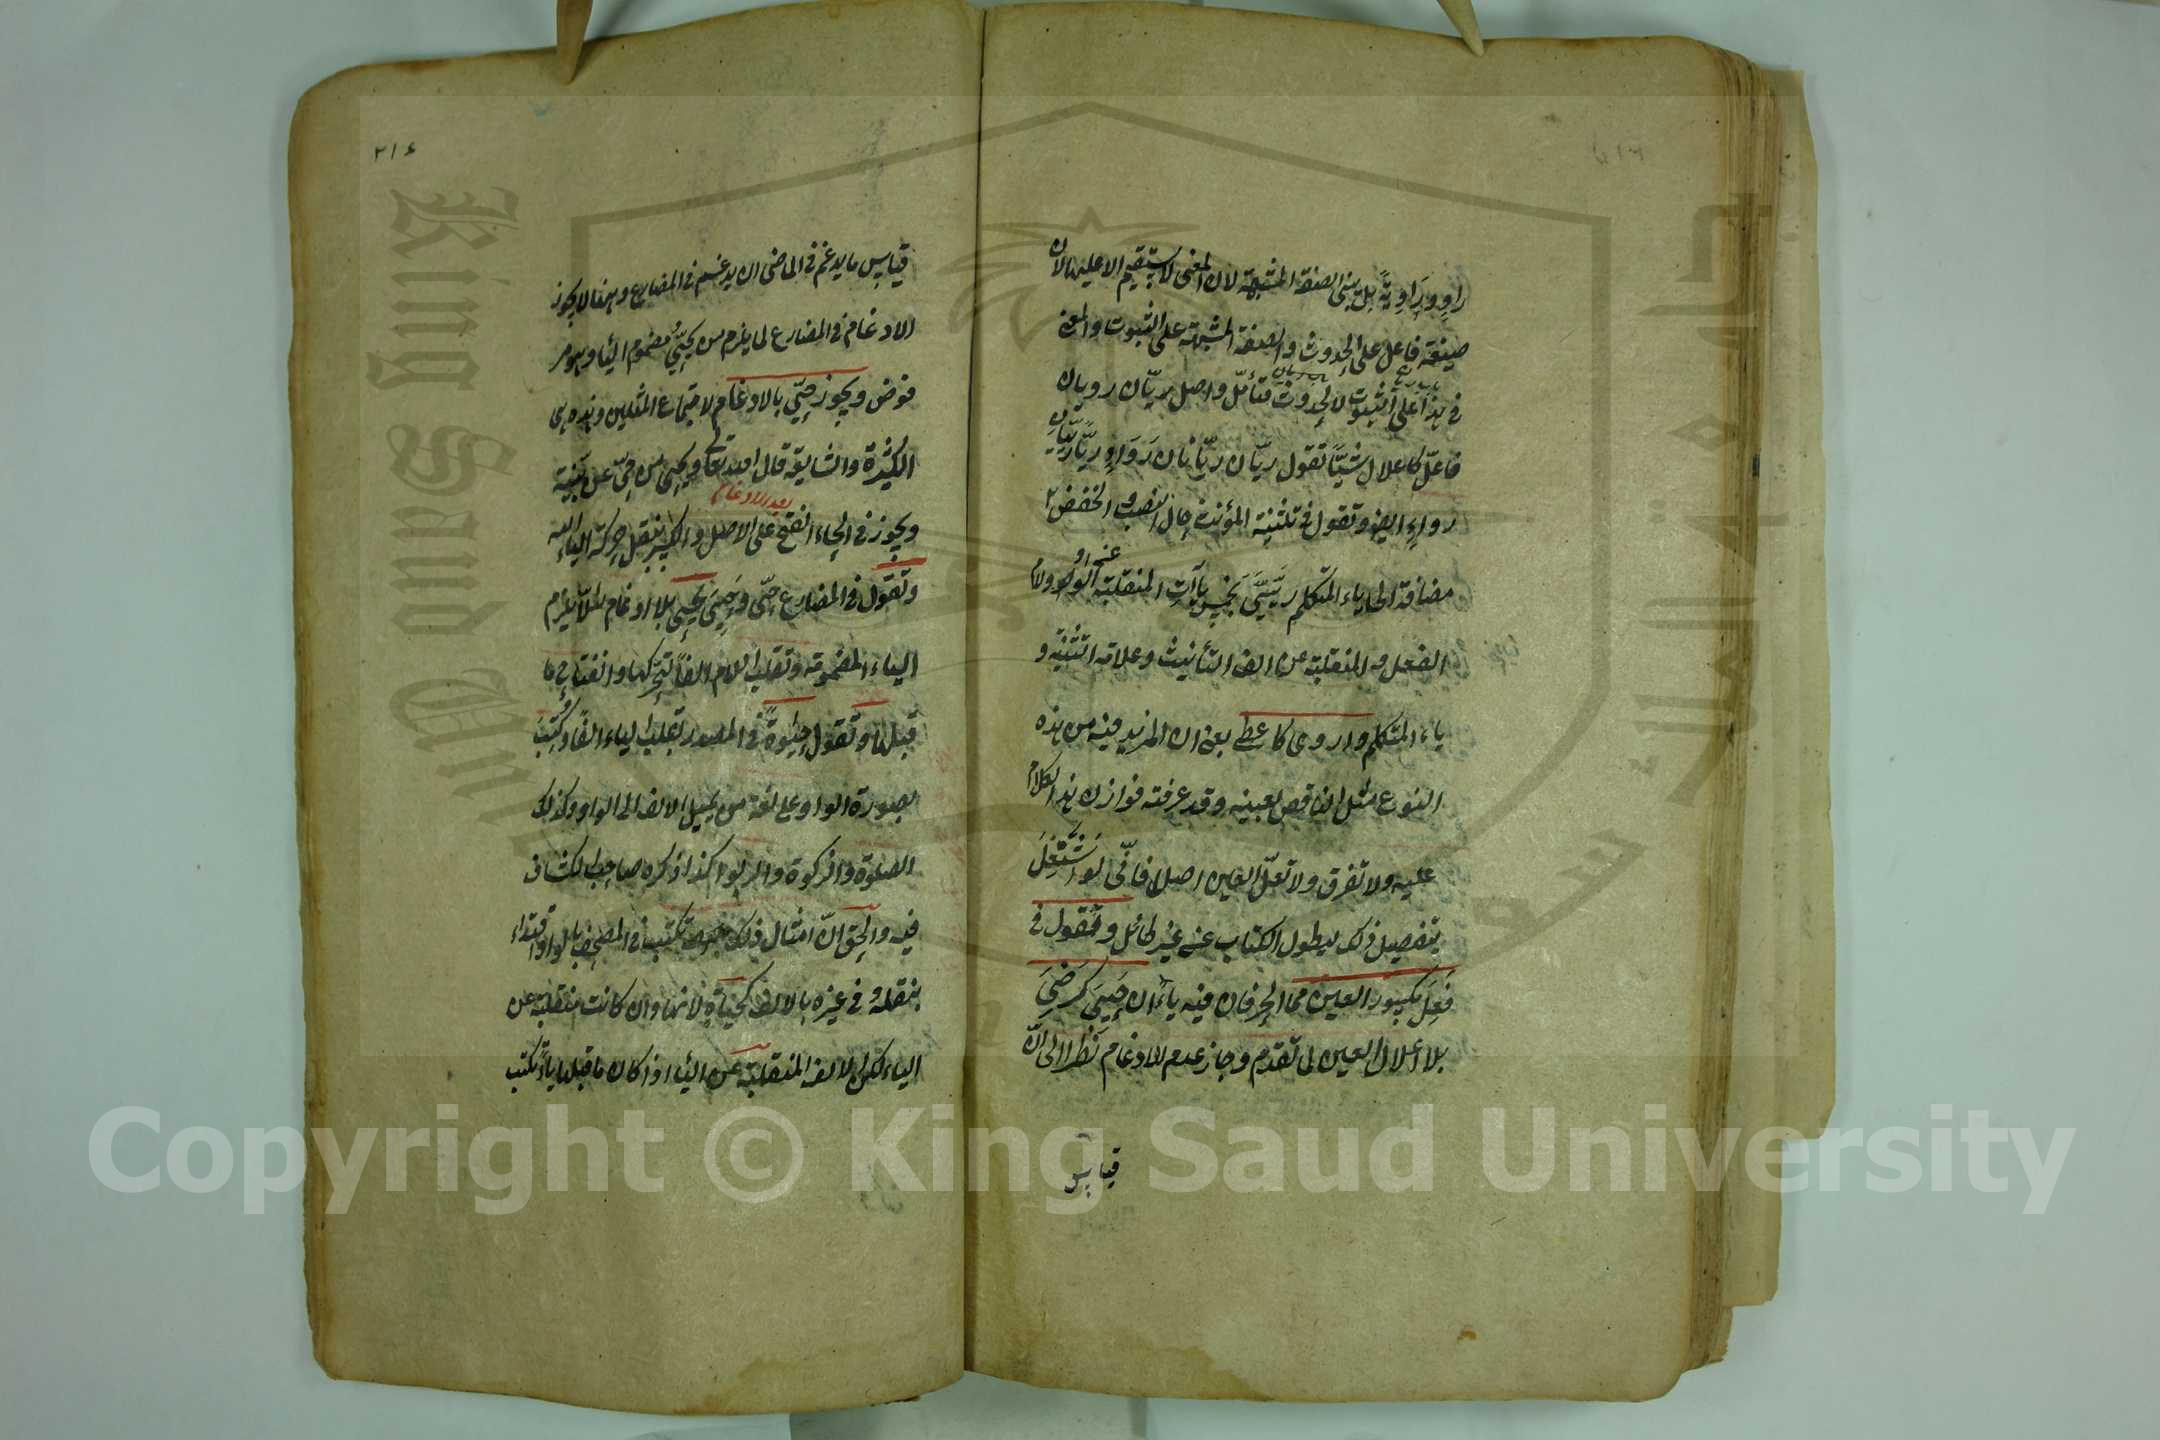 راوٍ وراوية بل يبنى الصفة المشبهة لان المعنى لا يستقيم الا عليها لان
صيغة فاعل على الحدوث والصفة المشبهة على الثبوت والمعنى
في هذا على الثبوت لا الحدوث فتأمل واصل ريّان رويان
فاعلّ كاعلال شيًّا تقول ريّان ريّانان رواء ريّا ريّيان
رواءٍ ايضا وتقول في تثنية المؤنث حال النصب والخفض
مضافة الى ياء المتكلم ريّيىّ بخمس ياآت المنقلبة عن الواو ولام
الفعل والمنقلبة عن الف التأنيث وعلامة التثنية و
ياء المتكلم واروى كاعطى يعنى ان المزيد فيه من هذه
النوع مثل الناقص بعينه وقد عرفته فوازن هذا الكلام
عليه ولا تفرق ولا تعلّ العين اصلا فانّى لو اشتغل
بتفصيل ذلك ليطول الكتاب عن غير طائل وتقول في
فَعِلَ بكسر العين مما الحرفان فيه ياءان حَيِيَ كرَضِيَ
بلا اعلال العين لما تقدم وجاز عدم الادغام نظرا الى انّ
قياس
٢١٤
قياس ما يدغم في الماضى ان يدغم في المضارع وههنا لا يجوز
الادغام في المضارع لما يلزم من يحيّ مضموم الياء وهو مر
فوض ويجوز حيّ بالادغام لاجتماع المثلين وهذه هى
الكثيرة والشايعة قال الله تعالى ويحيى من حيّ عن بيّنة
بعد الادغام
ويجوز في الحاء الفتح على الاصل والكسر بنقل حركة الياء اليه
وتقول في المضارع حيّ وحَيِيَ يحيى بلا ادغام لئلا يلزم
الياء المضمومة وتقلب اللام الفا لتحركها وانفتاح ما
قبلها وتقول حيٰوةً في المصدر بقلب الياء الفا وكتب
بصورة الواو على لغة من يميل الالف الى الواو وكذلك
الصلوة والزكوة والربوا كذا ذكره صاحب الكشاف
فيه والحق انّ امثال ذلك تكتب في المصحف بالواو اقتداء
بنقله وفي غيره بالالف كحياة لانها وان كانت منقلبة عن
الياء لكن الالف المنقلبة عن الياء اذا كان ما قبلها ياءً تكتب
Copyright © King Saud University
King Saud University